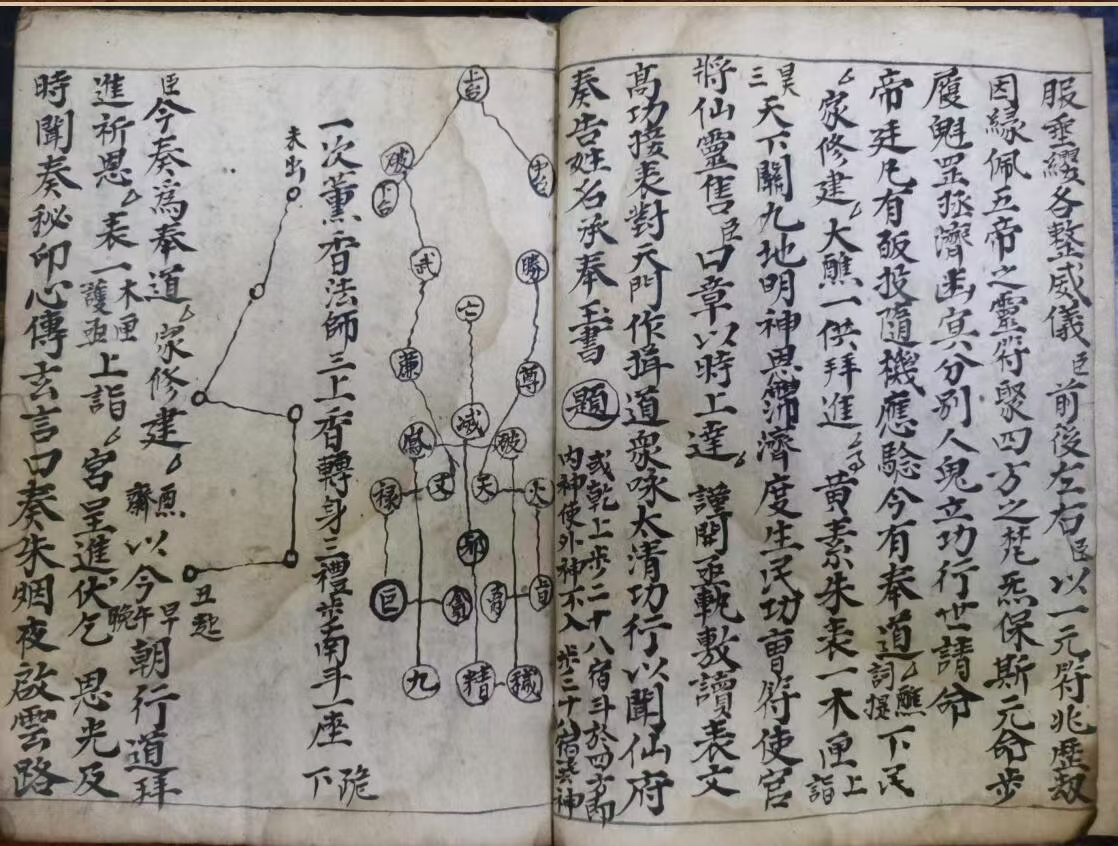 服垂纓各整威儀臣前後左右臣以一元符兆歷劫
因緣佩五帝之靈符聚四方之梵炁保斯元命步
履魁罡拯濟幽冥分別人鬼立功行世請命
帝廷凡有皈投隨機應驗今有奉道醮詞攝下民
家修建大醮一供拜進黃素朱表一木匣上詣
昊三天下關九地明神恩霈濟度生民功曹符使官
將仙靈臣口章以時上達謹開函執敷讀表文
高功接表對天門作揖道衆咏太清功行以聞仙府
奏告姓名承奉玉書
題
或乾上步二十八宿斗於四方即
内神使外神不入步三十八宿
上台
中台
下台
破
武
廉
祿
巨
勝
尊
七
破
火
九
精
一次薰香法師三上香轉身三禮步南斗一座跪下
未出
丑起
臣今奏為奉道家修建齋以今早午晚朝行道拜
進祈恩表一木匣護函上詣宮呈進伏乞恩光及
時聞奏秘印心傳玄言口奏朱烟夜啟雲路